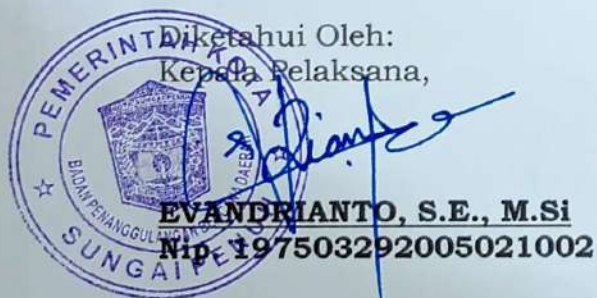 Diketahui Oleh:
Kepala Pelaksana,
PEMERINTAH KOTA
BADAN PENANGGULANGAN BENCANA DAERAH
SUNGAI PENUH
EVANDRIANTO, S.E., M.Si
Nip. 197503292005021002